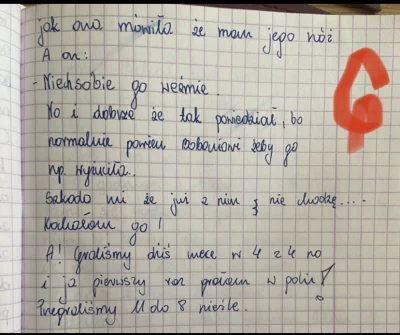 jak ona mówiła że mam jego nóż
A on:
- Niech sobie go weźmie.
No i dobrze że tak powiedział, bo
normalnie powiem żeby go
np. wyrzuciła..
Szkoda mi że już z nim nie chodzę....
Kochałam go!
A! Graliśmy dziś mecz w 4 z 4 no
i ja pierwszy raz grałem w polu!
Przegraliśmy 11 do 8 nieźle.